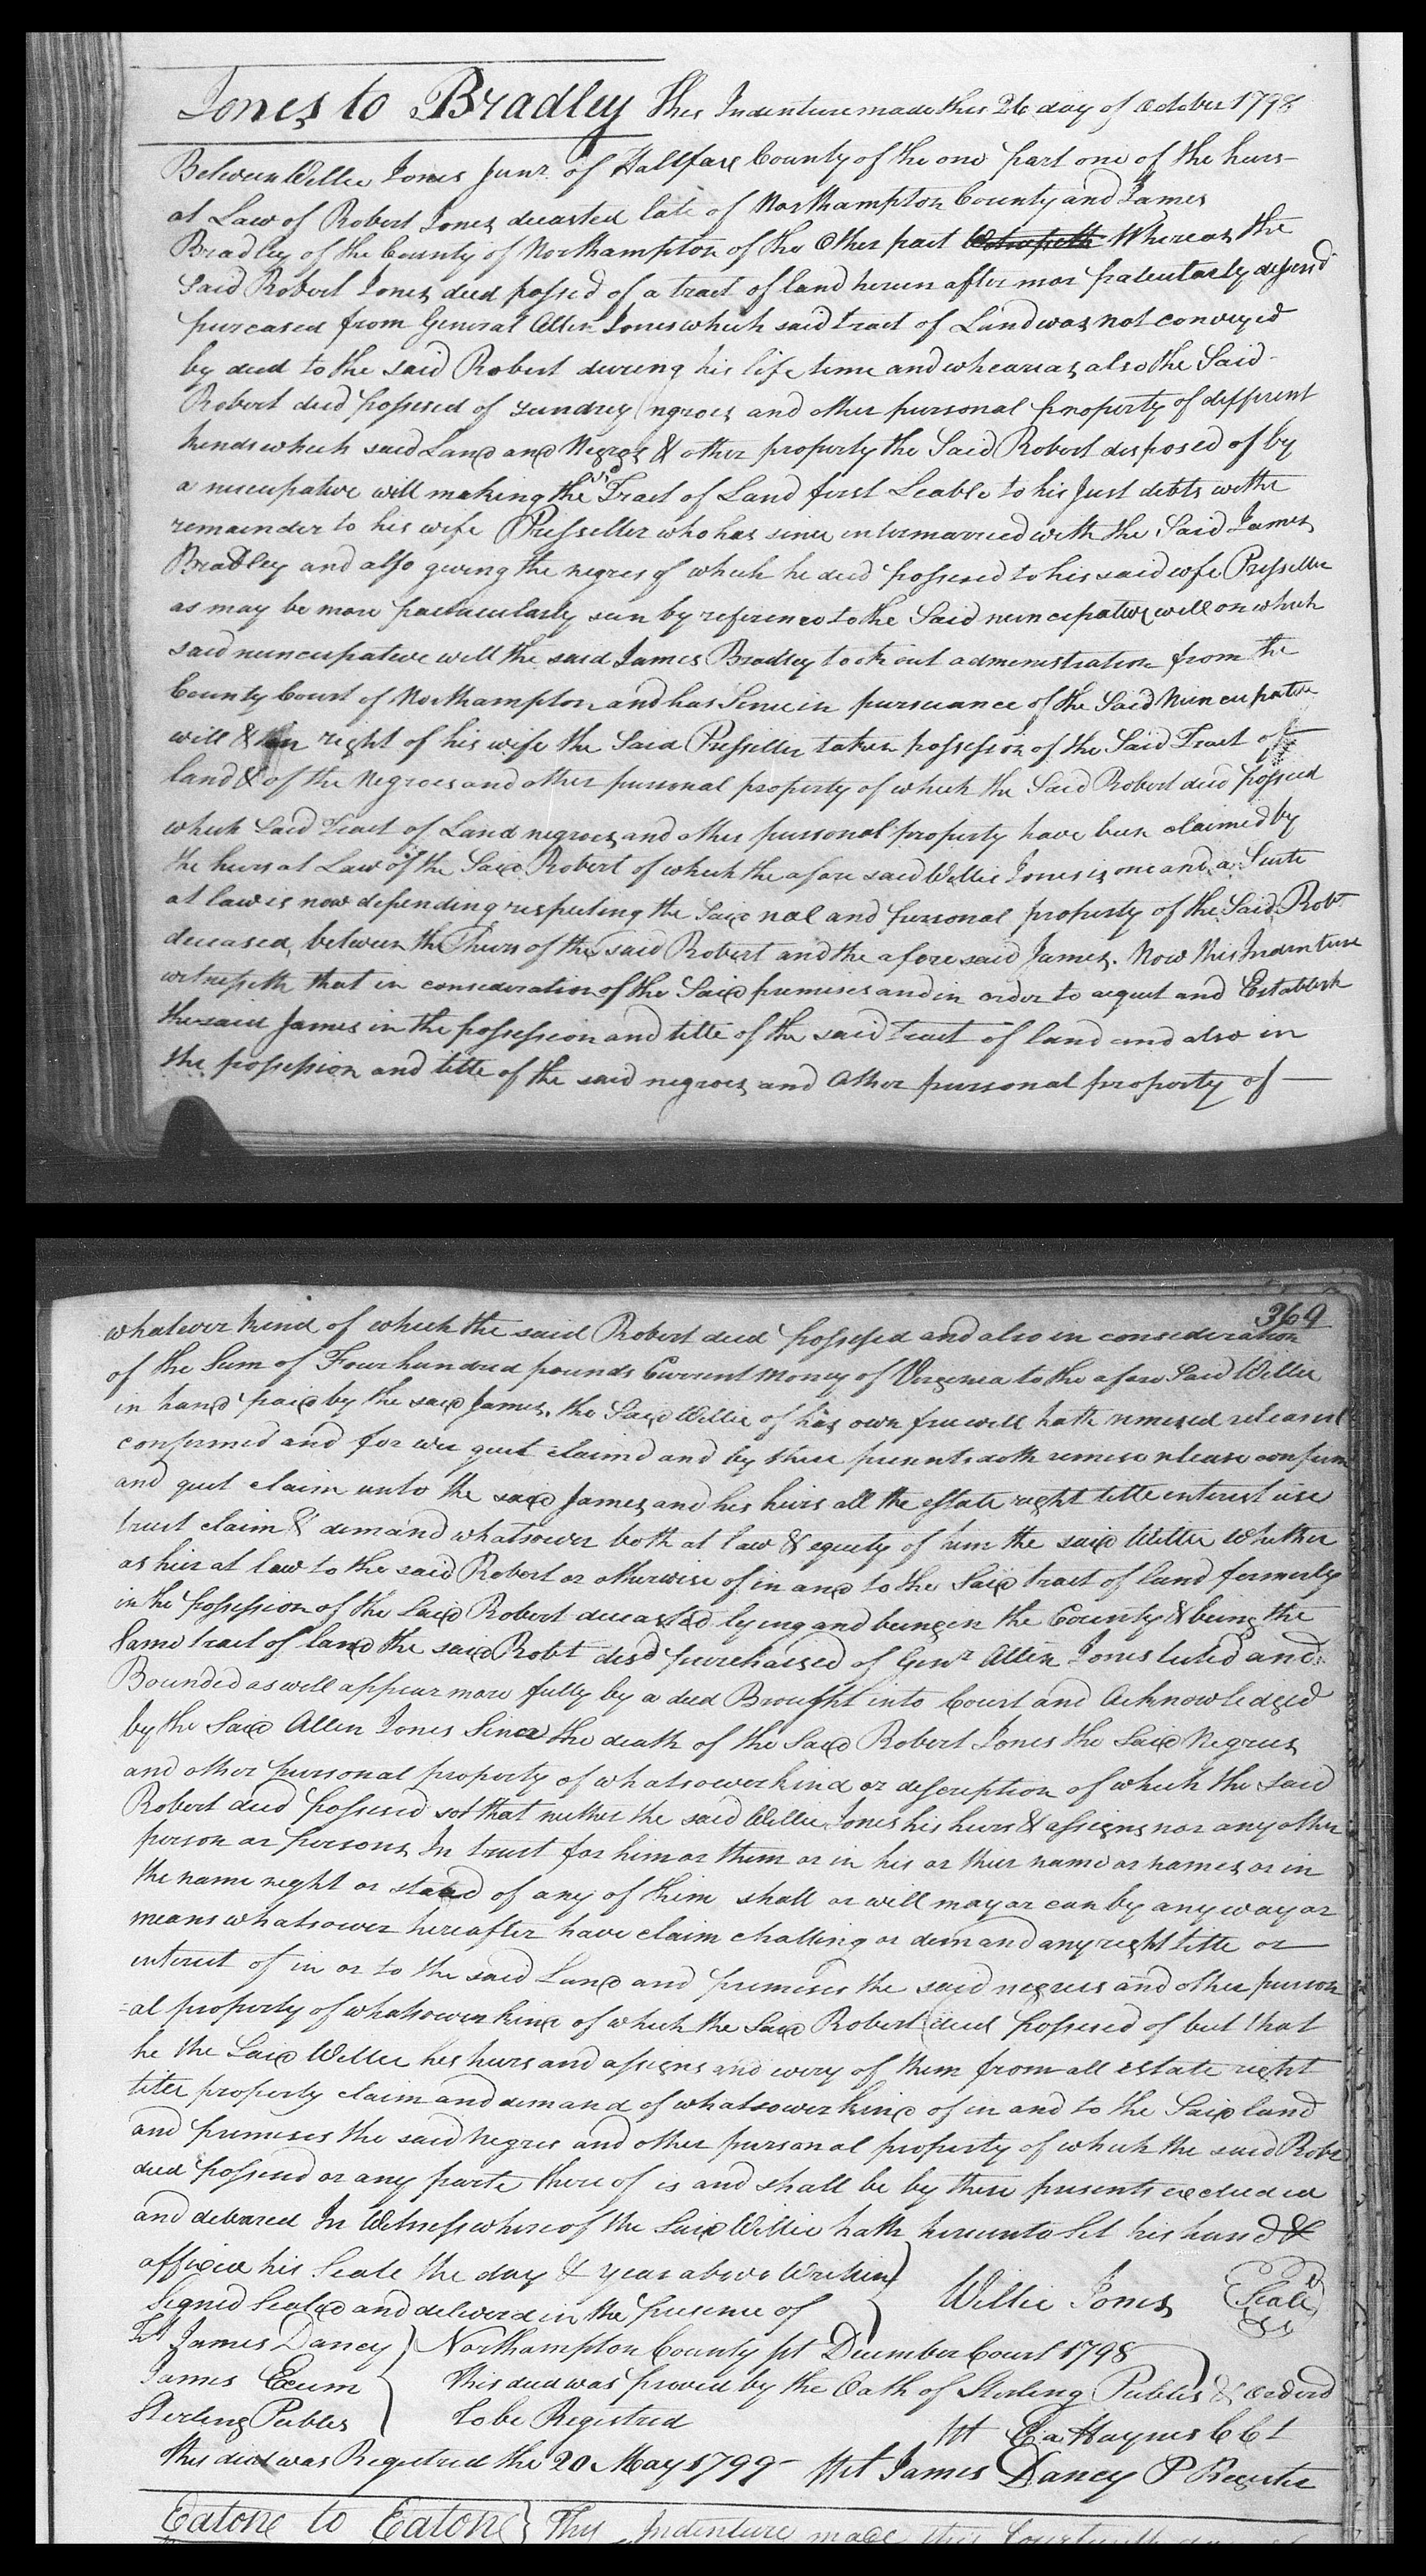 Jones to Bradley This Indenture made this 26 day of October 1798
Between Willie Jones Junr. of Hallfax County of the one part one of the heirs
at Law of Robert Jones deceasted late of Northampton County and James
Bradley of the County of Northampton of the Other part Whereas the
Said Robert Jones died possed of a tract of land herein after mor
purcased from General Allen Jones which said tract of Land was not conveyed
by deed to the said Robert during his life time and whearias also the Said
Robert died possesed of sundrey negroes and other personal property of different
kinds which said Land and Negros & other property the Said Robert disposed of by
a nuncupative will making the sd Tract of Land first Leable to his Just debts withe
remainder to his wife Prisseller who has since intermarried with the Said James
Bradley and also giving the negres of which he died possesed to his said wife Prissellee
as may be more particularly seen by reference to the Said nuncupative will on which
said nuncupative will the said James Bradley took out administration from the
County Court of Northampton and has Sinc in pursuance of the Said Nuncupative
will & in right of his wife the Said Prisseller taken possession of the Said Tract of
land & of the Negroes and other personal property of which the Said Robert died possed
which Said Tract of Land negroes and other personal property have been claimed by
the heirs at Law of the Said Robert of which the afore said Willie Jones is one and a Suite
at law is now depending respecting the Said real and personal property of the Said Robt
deceased, between the heirs of the said Robert and the afore said James. Now This Indenture
witnesseth that in consideration of the Said premises and in order to aequet and Establish
the said James in the possession and title of the said tract of land and also in
the possession and title of the said negroes and Other personal property of —
369
whatever kind of which the said Robert died possesed and also in consideration
of the Sum of Four hundred pounds Current Money of Virginia to the afore Said Willie
in hand paid by the said James, the Said Willie of his own free will hath remised released
confirmed and for ever quit claimd and by these presents doth remise release confirm
and quit claim unto the said James and his heirs all the estate right title interest use
trust claim & demand whatsower both at law & equity of him the said Willie Whither
as heir at law to the said Robert or otherwise of in and to the Said tract of land formerly
in the possession of the Said Robert deceasted lying and being in the County & being the
Same tract of land the said Robt desd purchaised of Genr. Allen Jones buted and
Bounded as will appear more fully by a deed Brought into Court and Acknowledged
by the Said Allen Jones Since the death of the Said Robert Jones the Said Negroes
and other personal property of whatsower kind or description of which the Said
Robert died possesed sot that neither the said Willie Jones his heirs & assigns nor any other
person or persons In trust for him or them or in his or their name or names or in
the name right or stead of any of him shall or will may or can by any way or
means whatsower hereafter have claim challing or demand any right title or
interest of in or to the said Land and premises the said negroes and other person
=al property of whatsower kind of which the Said Robert died possesed of but that
he the Said Willie his heirs and assigns and every of them from all estate right
titer property claim and demand of whatsower kind of in and to the Said land
and premises the said Negres and other personal property of which the said Robt
died possesd or any parte there of is and shall be by these presents excluded
and debared In Witness where of the Said Willie hath hereunto Set his hand &
affixed his Seale the day & year above Written
Signed Sealed and deliverd in the presence of Willie Jones Seale
Tst James Dancy Northampton County st December Court 1798
James Exum This deed was proved by the Oath of Sterling Peebles & orderd
Sterling Peebles to be Registred tst Ea Haynes CCt
This deed was Registred the 20 May 1799 - tst James Dancy P Register
Eatone to Eatone This Indenture made this